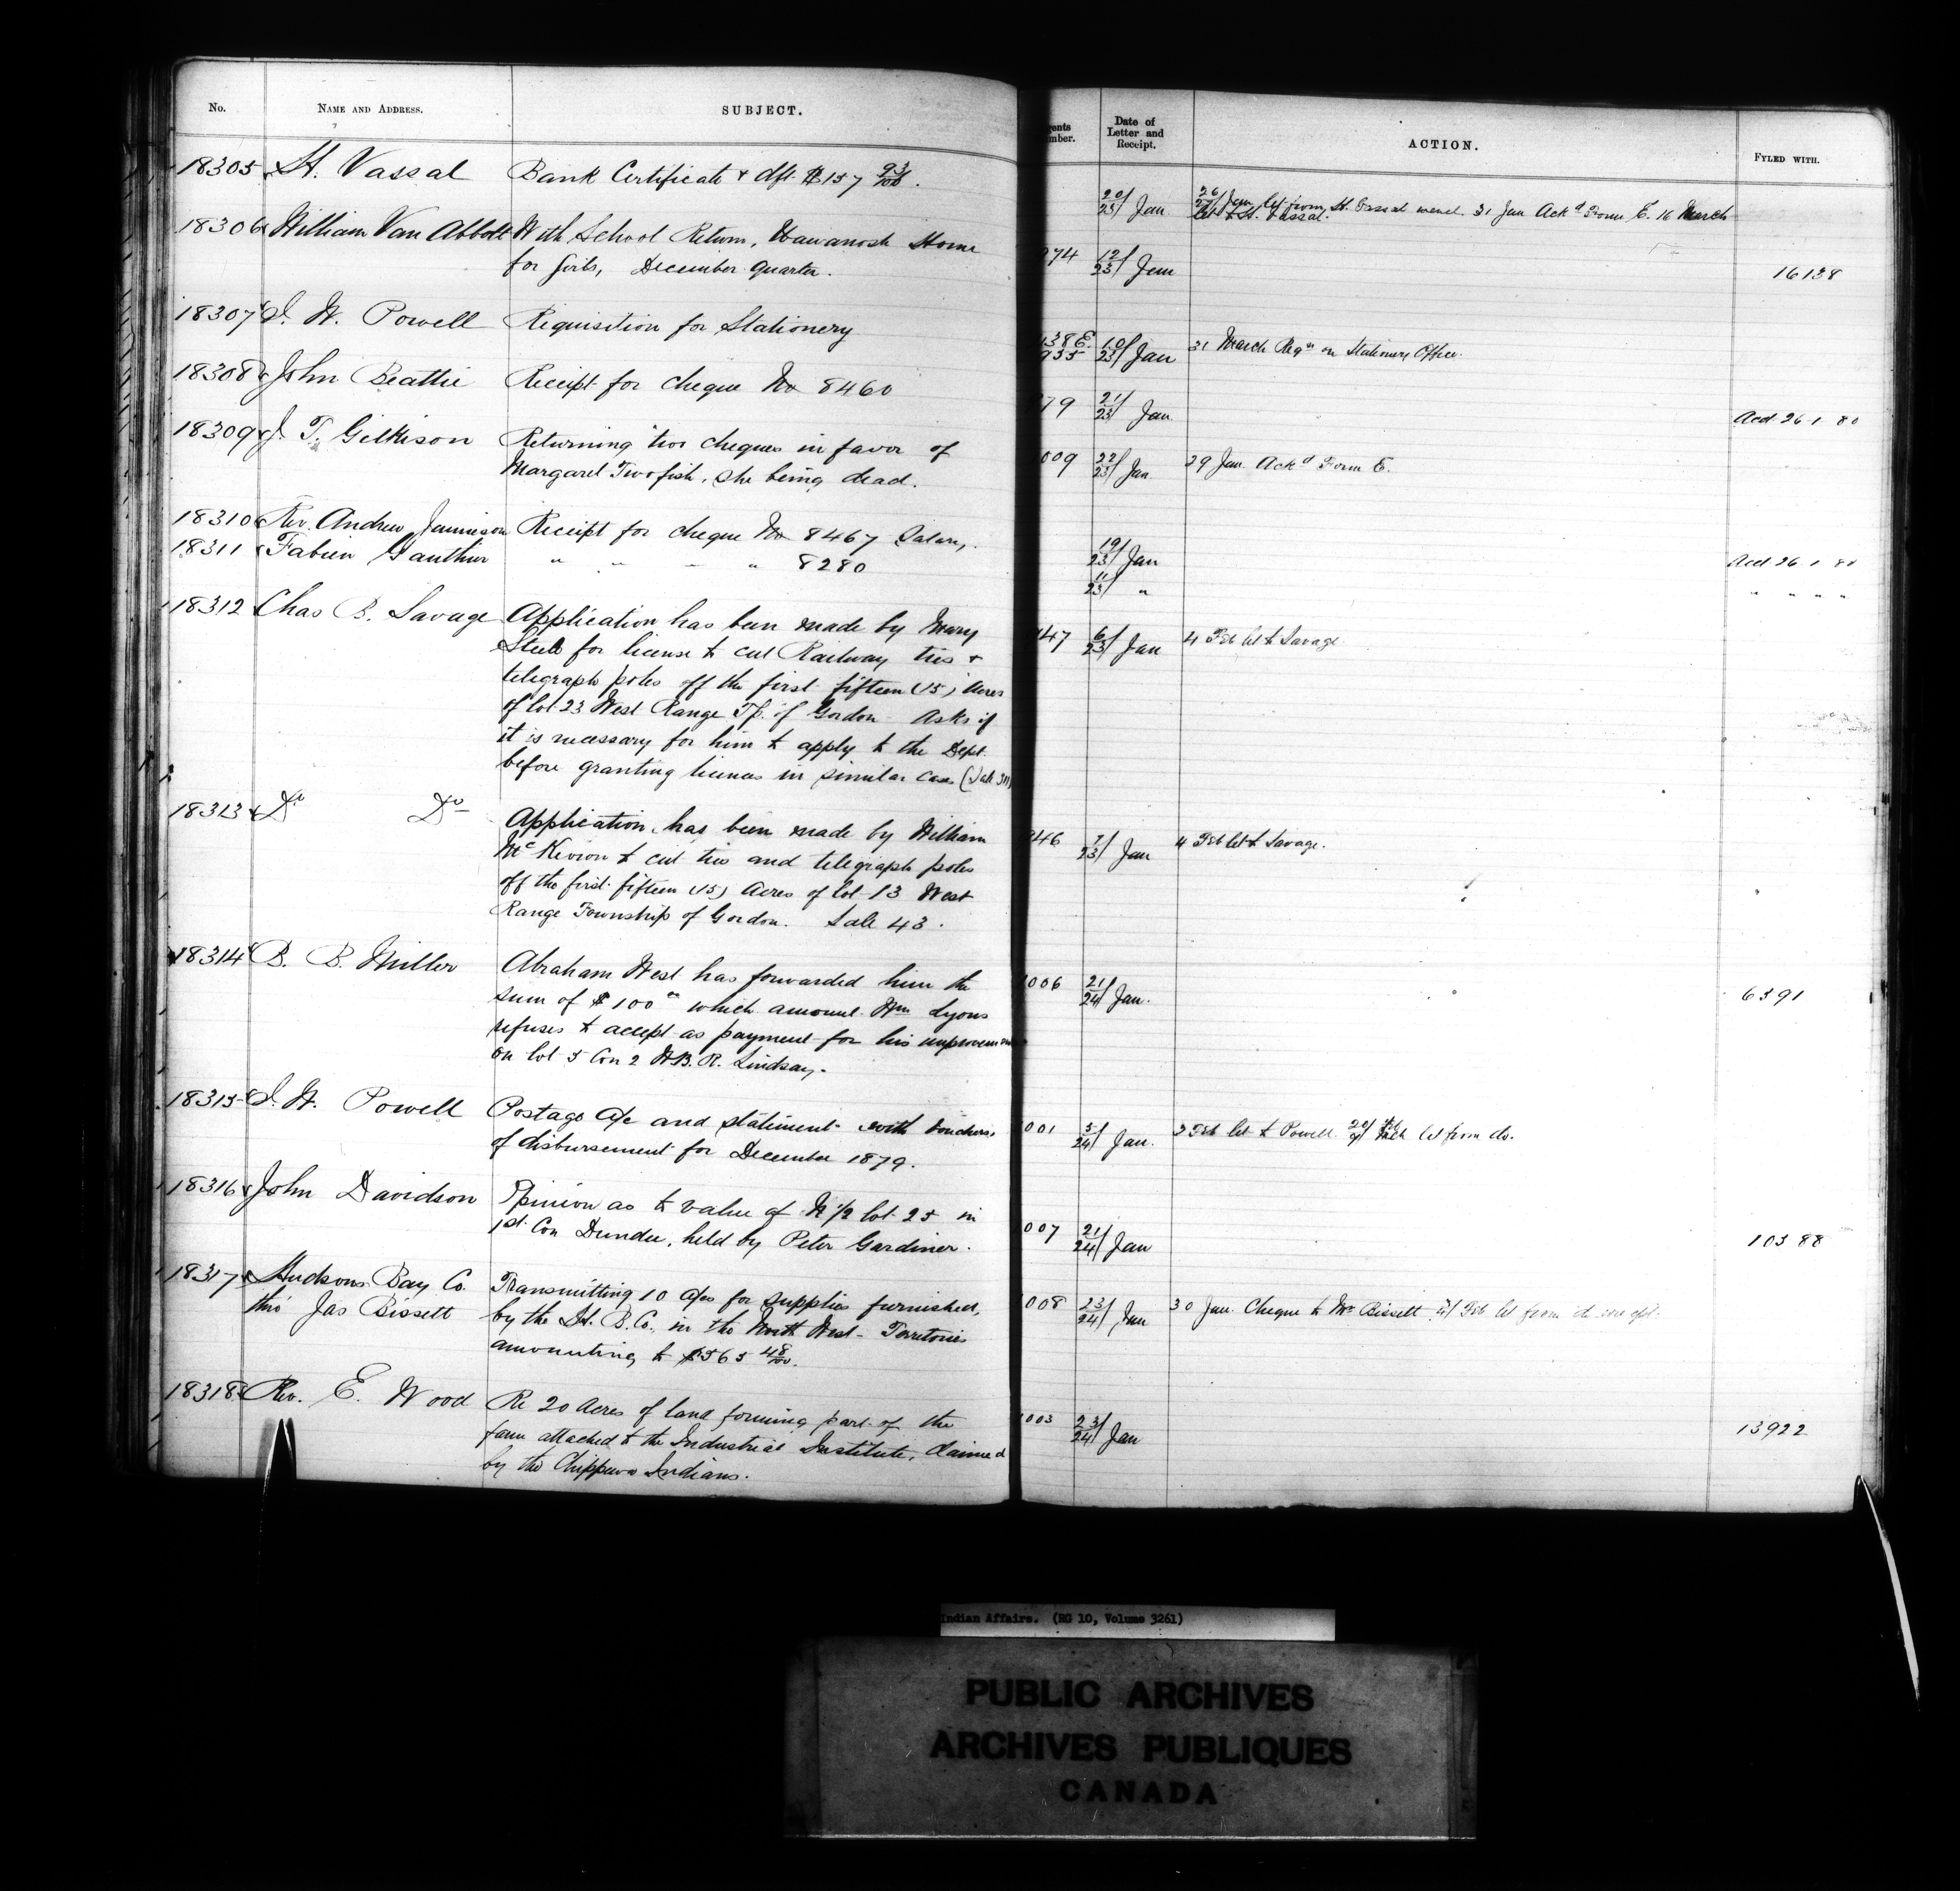 No. NAME AND ADDRESS. SUBJECT.
18305 H. Vassal Bank Certificate & dft. $157 93/100.
18306 William Van Abbott With School Return, Wawanosh Home
for Girls, December quarter.
18307 I. W. Powell Requisition for Stationery
18308 John Beattie Receipt for cheque No 8460
18309 J. T. Gilkison Returning two cheques in favor of
Margaret Twofish, she being dead.
18310 Rev. Andrew Jamieson Receipt for cheque No 8467 Salary.
18311 Fabien Gauthier " " " " 8280
18312 Chas B. Savage Application has been made by Mary
Steele for license to cut Railway ties &
telegraph poles off the first fifteen (15) Acres
of lot 23 West Range Tp. of Gordon Asks if
it is necessary for him to apply to the Dept.
before granting licenses in similar cases (Sale 311)
18313 Do Do Application has been made by William
McKevion to cut ties and telegraph poles
off the first fifteen (15) Acres of lot 13 West
Range Township of Gordon. Sale 43.
18314 B. B. Miller Abraham West has forwarded him the
sum of $100 which amount Wm Lyons
refuses to accept as payment for his
on lot 5 Con 2 W.B.R. Lindsay.
18315 I. W. Powell Postage a/c and statement with vouchers
of disbursement for December 1879.
18316 John Davidson Opinion as to value of N 1/2 lot 25 in
1st Con Dundee, held by Peter Gardiner.
18317 Hudsons Bay Co. Transmitting 10 a/cs for supplies furnished,
thro' Jas Bissett by the H. B. Co. in the North West Territories
amounting to $565 48/100.
18318 Rev. E. Wood Re 20 Acres of land forming part of the
farm attached to the Industrial Institute, claimed
by the Chippewa Indians.
ents mber. Date of Letter and Receipt. ACTION. FYLED WITH.
20/23 Jan 26/27 Jan let from H. Vassal 31 Jan Ackd Form E. 16 March
let to H. Vassal.
974 12/23 Jan 16138
138E. 935 10/23 Jan 31 March Reqn on Stationery Office.
79 21/23 Jan Acd 26 1 80
009 22/23 Jan 29 Jan. Ackd Form E.
19/23 Jan Acd 26 1 80
11/23 " " " " "
147 6/23 Jan 4 Feb let to Savage
946 7/23 Jan 4 Feb let to Savage.
006 21/24 Jan. 6391
001 5/24 Jan. 3 Feb let to Powell. let from do.
007 21/24 Jan 10388
008 23/24 Jan 30 Jan. Cheque to Mr Bissett Feb let from
003 23/24 Jan 13922
Indian Affairs. (RG 10, Volume 3261)
PUBLIC ARCHIVES
ARCHIVES PUBLIQUES
CANADA